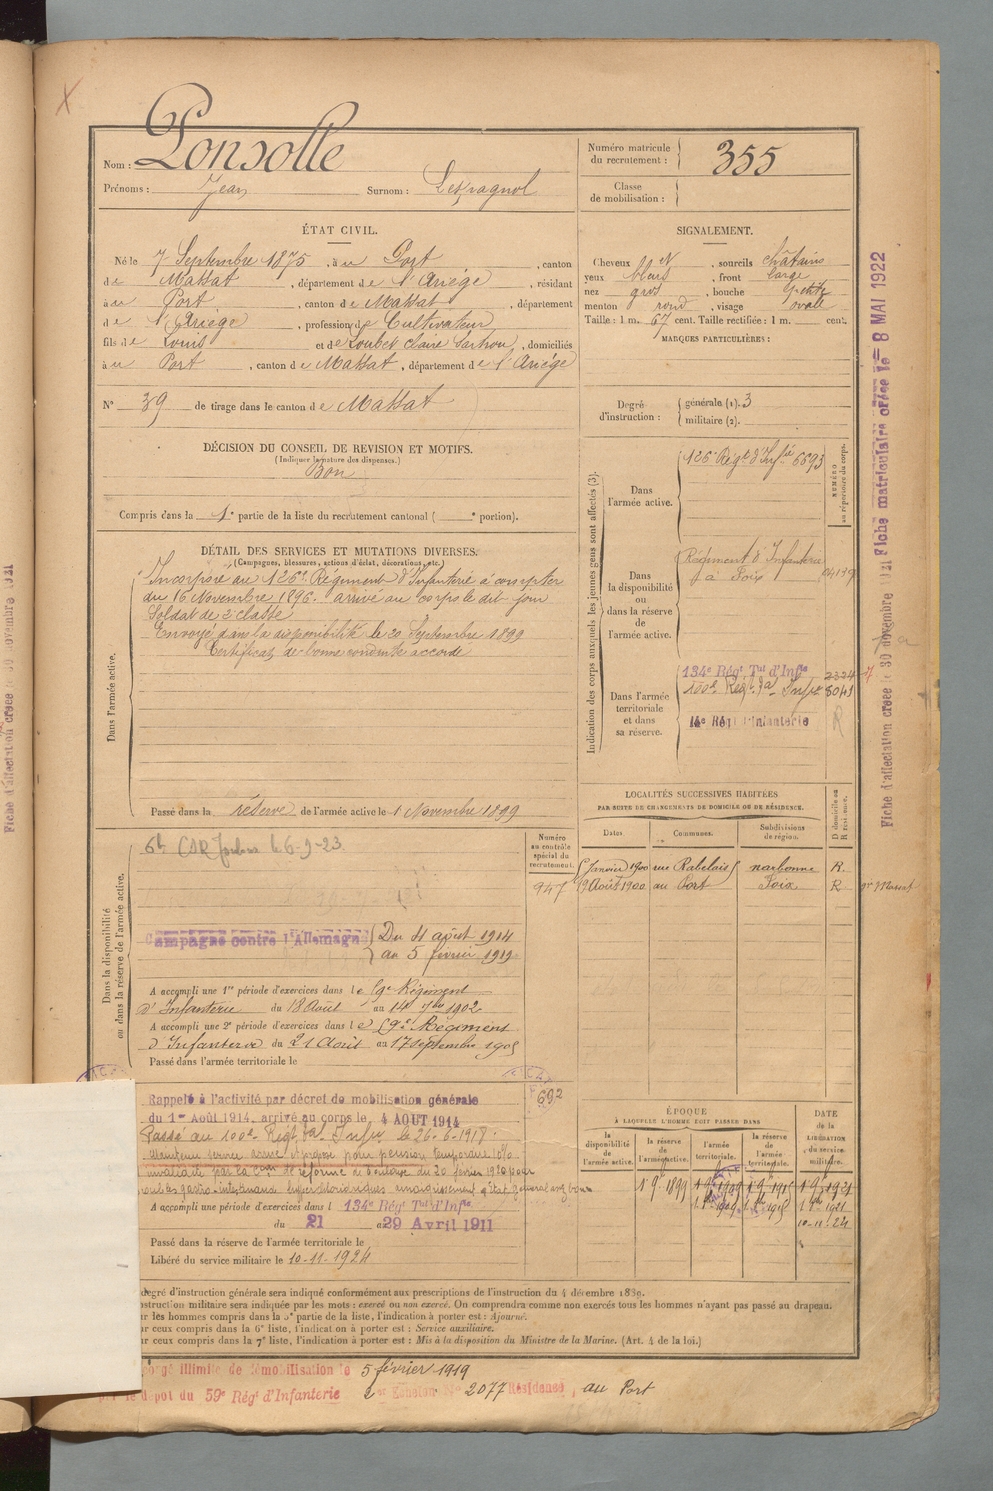 Ponsolle
Nom :
Prénoms : Jean Surnom : Lespagnol
Numéro matricule
du recrutement : 355
Classe
de mobilisation :
ÉTAT CIVIL.
Né le 7 Septembre 1875, à au Port, canton
de Massat, département de l'Ariège, résidant
à au Port, canton de Massat, département
de l'Ariège, profession de Cultivateur
fils de Louis et de Loubet Claire, domiciliés
à au Port, canton de Massat, département de l'Ariège
N° 39 de tirage dans le canton de Massat
SIGNALEMENT.
Cheveux, sourcils châtains
yeux bleus, front large
nez gros, bouche petite
menton rond, visage ovale
Taille : 1 m. 67 cent. Taille rectifiée : 1 m. cent.
MARQUES PARTICULIÈRES :
Degré
d'instruction :
générale (1). 3
militaire (2).
DÉCISION DU CONSEIL DE REVISION ET MOTIFS.
(Indiquer la nature des dispenses.)
Bon
Compris dans la 1e partie de la liste du recrutement cantonal ( e portion).
DÉTAIL DES SERVICES ET MUTATIONS DIVERSES.
(Campagnes, blessures, actions d'éclat, décorations, etc.)
Dans l'armée active.
Incorporé au 126e Régiment d'Infanterie à compter
du 16 Novembre 1896. arrivé au corps le dit jour
Soldat de 2e classe
Envoyé dans la disponibilité le 20 Septembre 1899
Certificat de bonne conduite accordé
Passé dans la réserve de l'armée active le 1 Novembre 1899
Indication des corps auxquels les jeunes gens sont affectés (3).
NUMÉRO
au répertoire du corps.
Dans
l'armée active.
126 Régt d'Infie 6693
Dans
la disponibilité
ou
dans la réserve
de
l'armée active.
Régiment d'Infanterie
à Foix
Dans l'armée
territoriale
et dans
sa réserve.
134e Régt Tal d'Infie 2324
100e Régt Tal Infie 8041
14e Régt d'Infanterie
R
LOCALITÉS SUCCESSIVES HABITÉES
PAR SUITE DE CHANGEMENTS DE DOMICILE OU DE RÉSIDENCE.
D domicile ou
R résidence.
Dates Communes. Subdivisions
de région.
5 Janvier 1900 rue Rabelais narbonne R.
19 Août 1900 au Port Foix R
Numéro
au contrôle
spécial du
recrutement.
947
692
Dans la disponibilité
ou dans la réserve de l'armée active.
le 6-9-23
Campagne contre l'Allemagne
Du 4 août 1914
au 5 février 1919
A accompli une 1re période d'exercices dans le 59e Régiment
d'Infanterie du 18 Août au 14 7bre 1902
A accompli une 2e période d'exercices dans le 59e Régiment
d'Infanterie du 21 Août au 17 septembre 1905
Passé dans l'armée territoriale le
Rappelé à l'activité par décret de mobilisation générale
du 1er Août 1914, arrivé au corps le 4 AOUT 1914
Passé au 100e Régt Tal Infie le 26-6-1917.
Maintenu service armé et proposé pour pension temporaire 10%
invalidité par la Com. de réforme de Toulouse du 20 février 1920 pour
troubles gastro-intestinaux hyperchlorhydriques amaigrissement état général assez bon
A accompli une période d'exercices dans l 134e Régt Tal d'Infie
du 21 au 29 Avril 1911
Passé dans la réserve de l'armée territoriale le
Libéré du service militaire le 10-11-1924
ÉPOQUE
À LAQUELLE L'HOMME DOIT PASSER DANS
la
disponibilité
de
l'armée active.
la réserve
de
l'armée active.
l'armée
territoriale.
la réserve
de
l'armée
territoriale.
DATE
de la
LIBÉRATION
du service
militaire.
1 9bre 1899 1 9bre 1909 1 9bre 1915 1 9bre 1921
10-11-24
degré d'instruction générale sera indiqué conformément aux prescriptions de l'instruction du 4 décembre 1889.
instruction militaire sera indiquée par les mots : exercé ou non exercé. On comprendra comme non exercés tous les hommes n'ayant pas passé au drapeau.
les hommes compris dans la 5e partie de la liste, l'indication à porter est : Ajourné.
ceux compris dans la 6e liste, l'indication à porter est : Service auxiliaire.
ceux compris dans la 7e liste, l'indication à porter est : Mis à la disposition du Ministre de la Marine. (Art. 4 de la loi.)
congé illimité de démobilisation le 5 février 1919
par le dépôt du 59e Régt d'Infanterie 2e Echelon N° 2077 Résidence, au Port
Fiche d'affectation créée le 30 novembre 1921 Fiche matriculaire créée le 8 MAI 1922
Fiche d'affectation créée le 30 novembre 1921